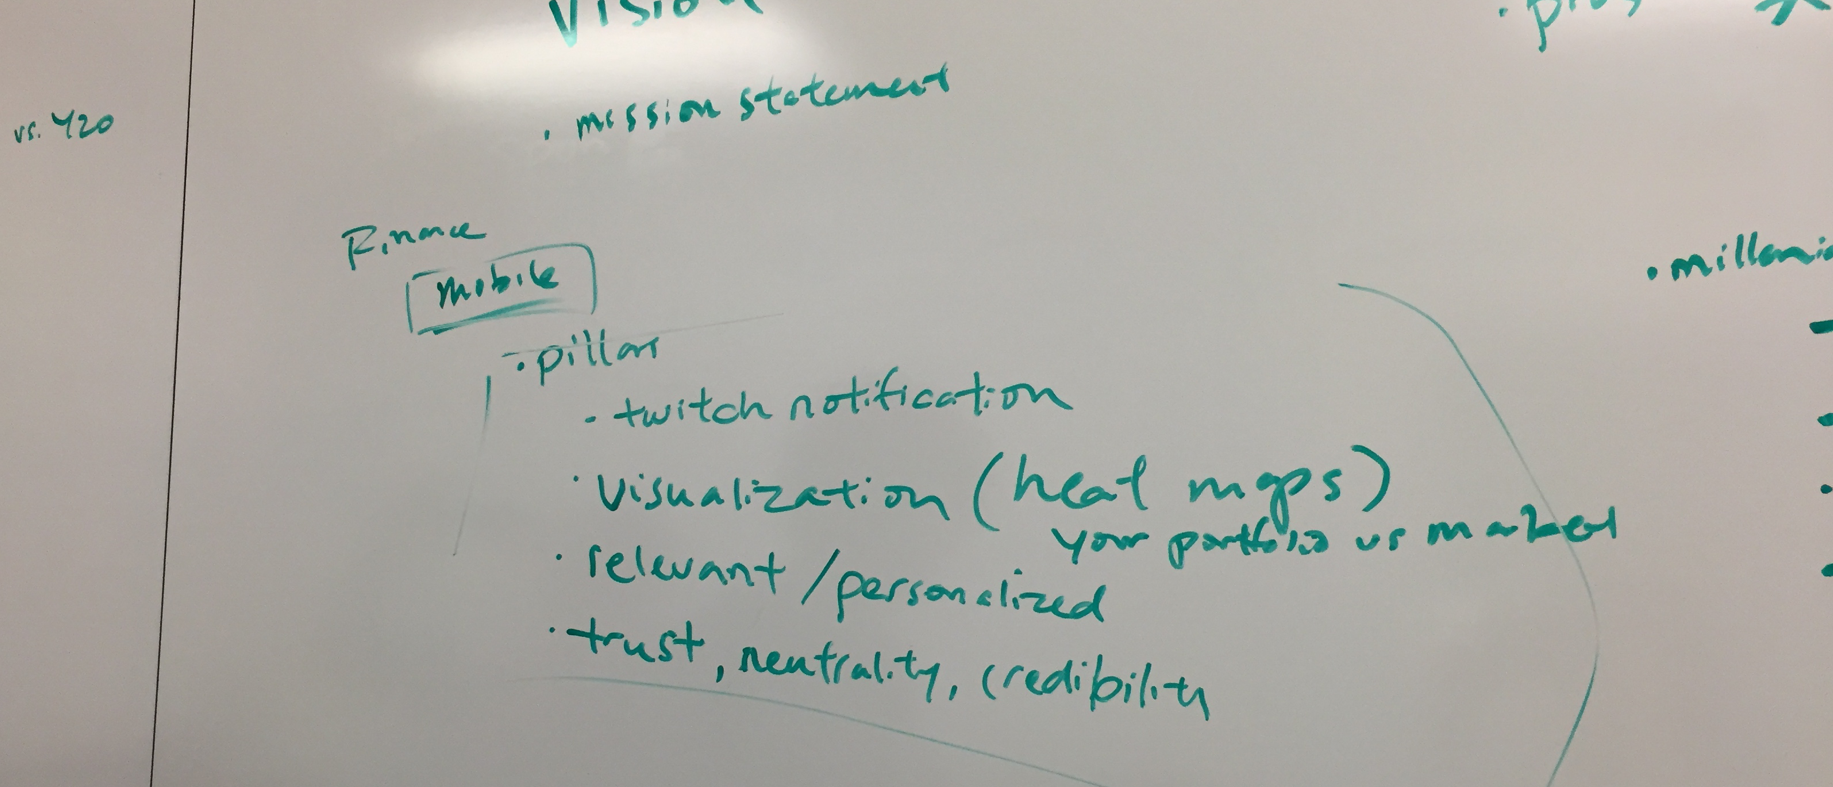 Vision
· mission statement
vs. Y20
Finance
mobile
· pillar
- twitch notification
· visualization (heat maps)
your portfolio vs market
· relevant / personalized
· trust, neutrality, credibility